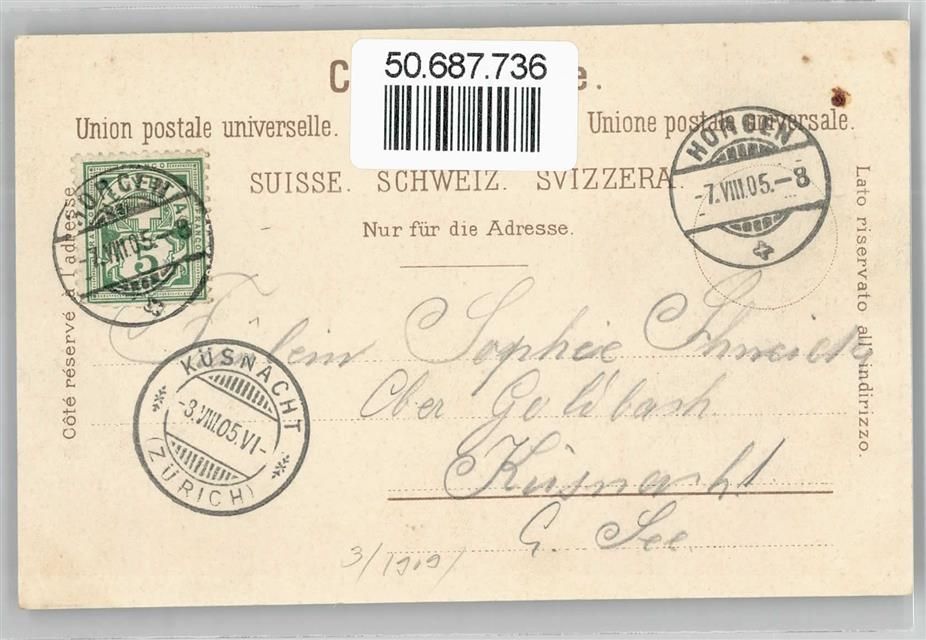 50.687.736
Union postale universelle.
Unione postale universale.
SUISSE. SCHWEIZ. SVIZZERA.
Nur für die Adresse.
Côté réservé à l'adresse.
Lato riservato all'indirizzo.
HORGEN
-7.VIII.05.-8
HORGEN
-7.VIII.05.-8
FRANCO
5
KÜSNACHT
-3.VIII.05.VI-
(ZÜRICH)
Sophie
Ober Goldbach
Küsnacht
See